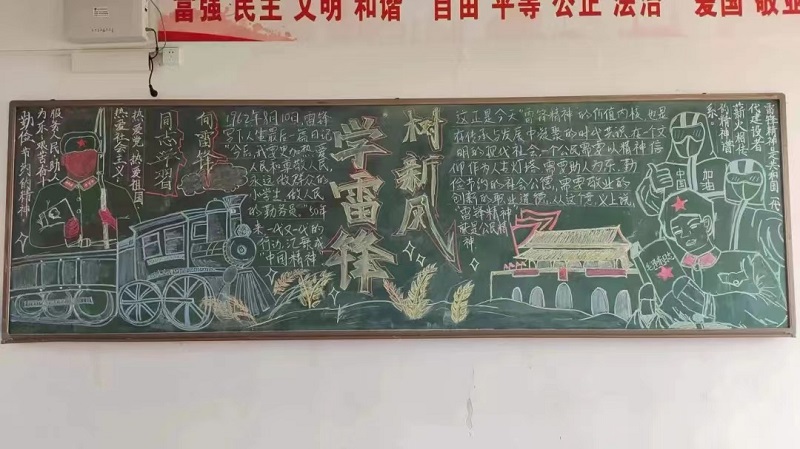 富强 民主 文明 和谐 自由 平等 公正 法治 爱国 敬业
服务人民,助
为乐,艰苦奋斗
勤俭节约的精神
热爱党 热爱祖国
热爱社会主义!
向雷锋
同志学习
1962年8月10日,雷锋
写下人生最后一篇日记
“今后,我要更加热爱人
民和尊敬人民,
永远做群众的
小学生,做人民
的勤务员”50年
来一代又一代的
行动,沉淀成
“中国精神”
学雷锋
树新风
这正是今天“雷锋精神”的价值内核,也是
在传承与发展中凝聚的时代共识,在一个文
明的现代社会,一个公民需要以精神信
仰作为人生灯塔,需要助人为乐、勤
俭节约的社会公德,需要敬业的
创新的职业道德,从这个意义上说,
“雷锋精神”
就是公民精
神
雷锋精神是共和国一代
代建设者
薪火相传
的精神谱
系
中国
加油